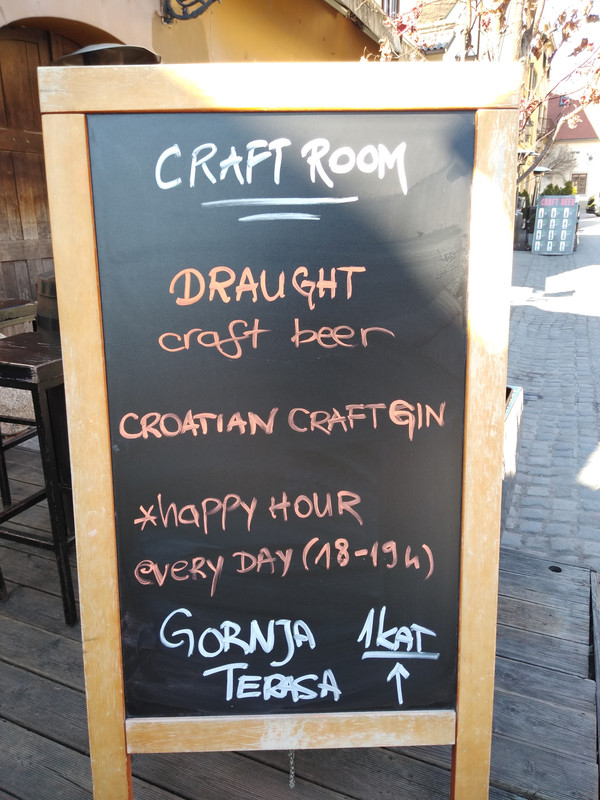 CRAFT ROOM
DRAUGHT
craft beer
CROATIAN CRAFT GIN
*happy HOUR
every DAY (18-19h)
GORNJA 1 KAT
TERASA ↑
CRAFT BEER